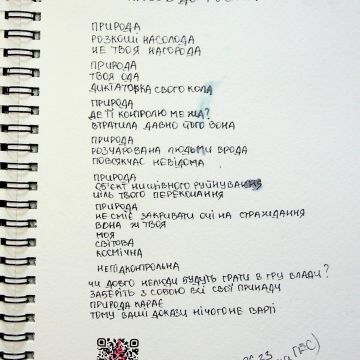 ПРИРОДА
РОЗКОШІ НАСОЛОДА
НЕ ТВОЯ НАГОРОДА
ПРИРОДА
ТВОЯ ОДА
ДИКТАТОРКА СВОГО КОЛА
ПРИРОДА
ДЕ ЇЇ КОНТРОЛЮ МЕЖА?
ВТРАТИЛА ДАВНО ЙОГО ВОНА
ПРИРОДА
РОЗЧАРОВАНА ЛЮДЬМИ ВРОДА
ПОВСЯКЧАС НЕВІДОМА
ПРИРОДА
ОБ'ЄКТ НИЩІВНОГО РУЙНУВАННЯ
ЦІЛЬ ТВОГО ПЕРЕКОНАННЯ
ПРИРОДА
НЕ СМІЄ ЗАКРИВАТИ ОЧІ НА СТРАЖДАННЯ
ВОНА Ж ТВОЯ
МОЯ
СВІТОВА
КОСМІЧНА
НЕПІДКОНТРОЛЬНА
ЧИ ДОВГО НЕЛЮДИ БУДУТЬ ГРАТИ В ГРУ ВЛАДИ?
ЗАБЕРІТЬ З СОБОЮ ВСІ СВОЇ ПРИНАДИ
ПРИРОДА КАРАЄ
ТОМУ ВАШІ ДОКАЗИ НІЧОГО НЕ ВАРТІ